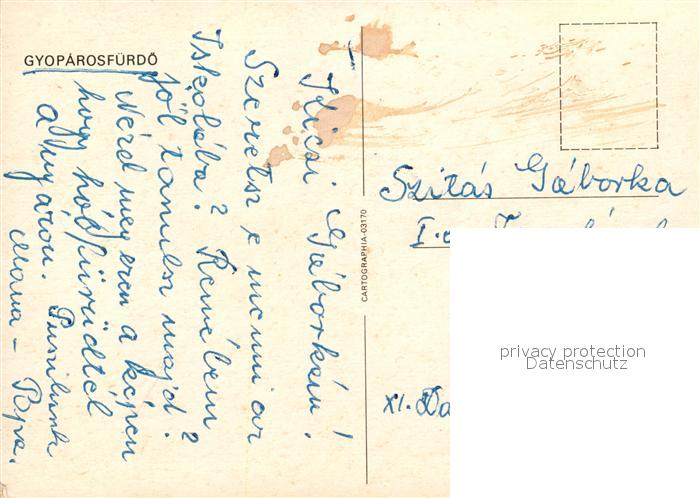 GYOPÁROSFÜRDŐ
Kicsi Gáborkám!
Szeretsz e menni az
Iskolába? Remélem
jól tanulsz majd?
Nézd meg ezen a képen
hogy hol fürödtél
a nyáron. Puszilunk
Mama - Papa.
CARTOGRAPHIA-03170
Szitás Gáborka
I. o.
XI.
privacy protection
Datenschutz